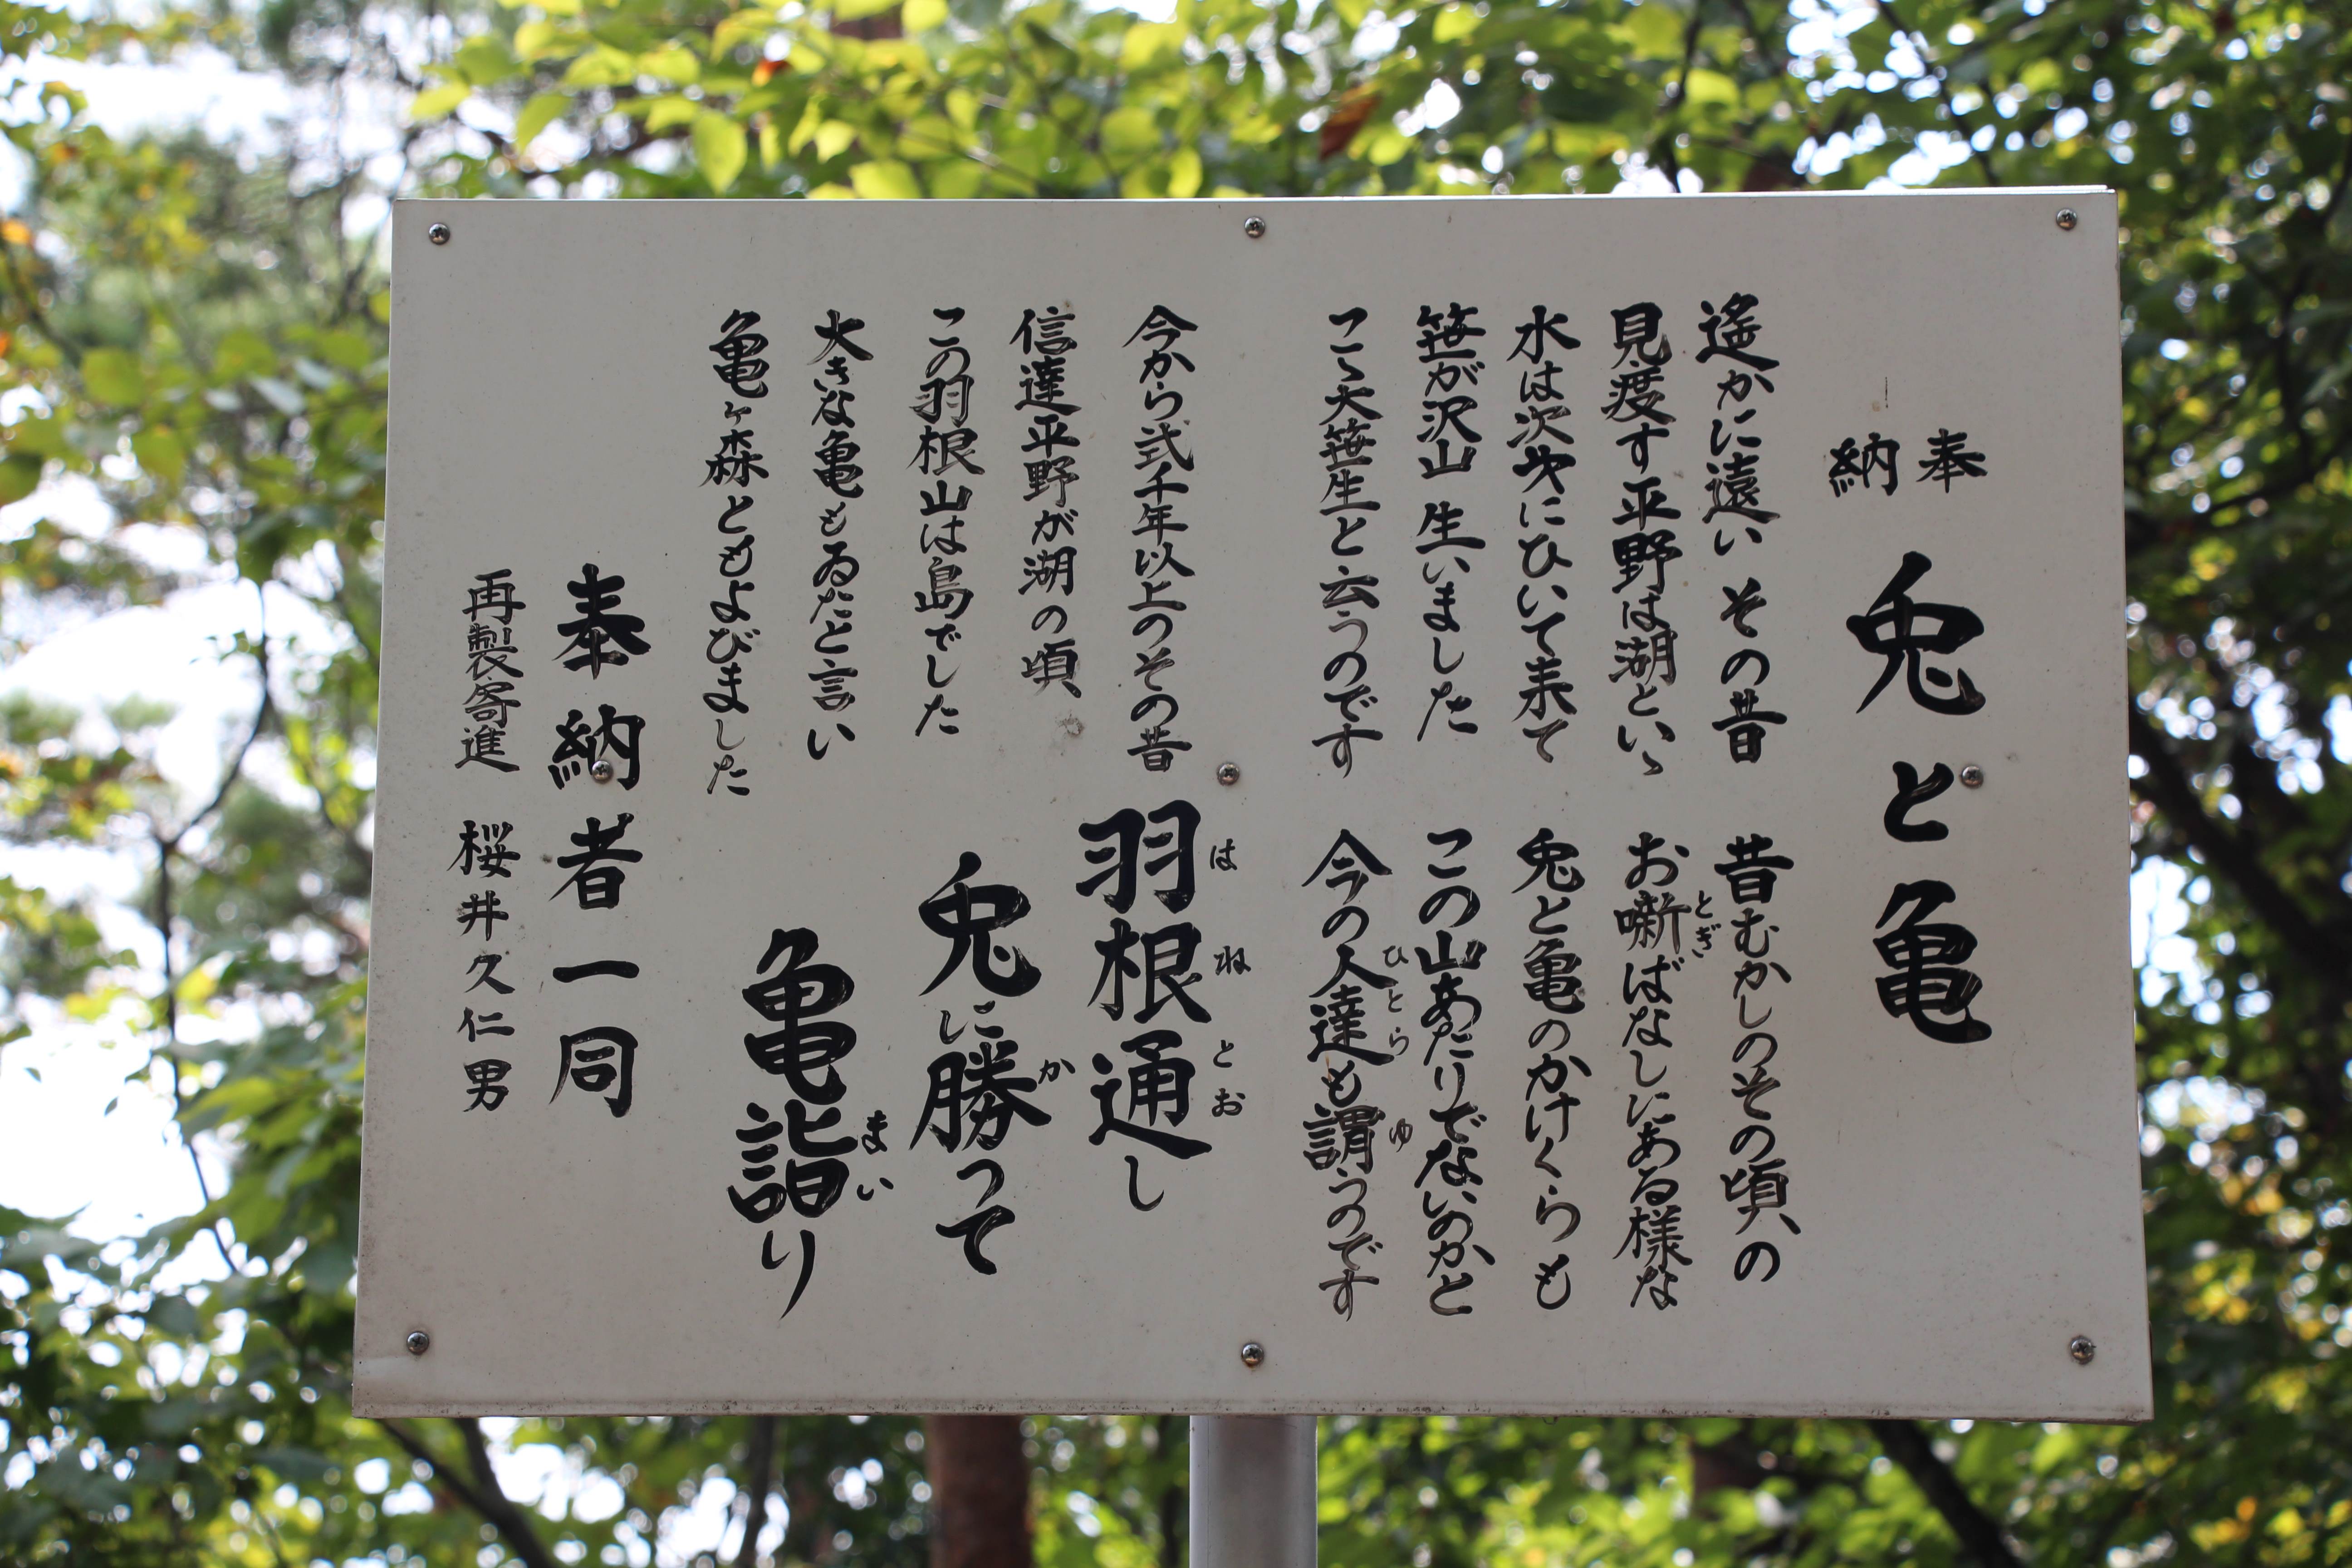 奉納
兎と亀
遙かに遠い その昔
見渡す平野は湖といゝ
水は次次にひいて来て
笹が沢山 生いました
こゝ大笹生と云うのです
昔むかしのその頃の
お噺ばなしにある様な
とぎ
兎と亀のかけくらも
この山あたりでないのかと
今の人達も謂うのです
ひとら ゆ
今から弍千年以上のその昔
信達平野が湖の頃
この羽根山は島でした
大きな亀もゐたと言い
亀ヶ森ともよびました
羽根通し
はねとお
兎に勝って
か
亀詣り
まい
奉納者一同
再製寄進 桜井久仁男